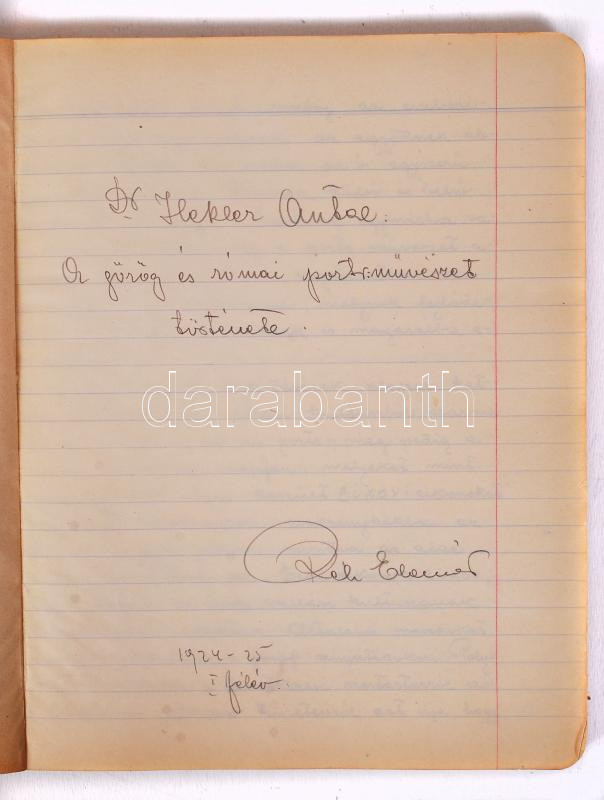 Dr Hekler Antal.
A görög és római portr. művészet
története.
darabanth
Elemér
1924-25
I félév.